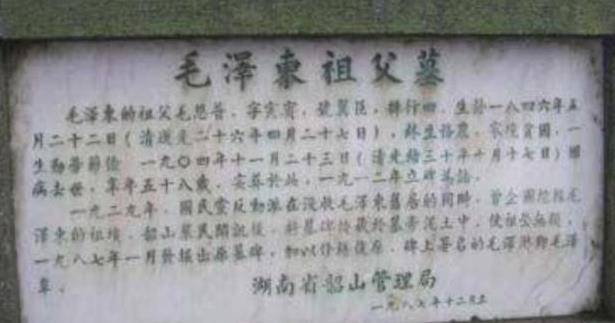 毛澤東祖父墓
毛澤東的祖父毛恩普，字寅賓，號翼臣，排行四，生於一八四六年五
月二十二日（清道光二十六年四月二十七日），終生務農，家境貧困，一
生勤勞節儉 一九〇四年十一月二十三日（清光緒三十年十月十七日）因
病去世，享年五十八歲，安葬於此，一九一二年立碑為誌。
一九二九年，國民黨反動派在沒收毛澤東舊居的同時，曾企圖挖掘毛
澤東的祖墳，韶山羣民聞訊後，將墓碑掩藏於墓旁泥土中，使祖塋無損，
一九八七年一月發掘出原墓碑，加以作縫復原，碑上署名的毛澤琳即毛澤
覃。
湖南省韶山管理局
一九八七年十二月立